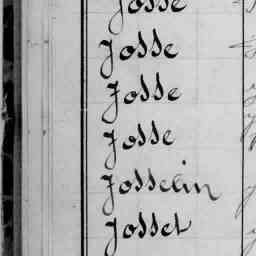 Josse
Josse
Josse
Josse
Josselin
Josset